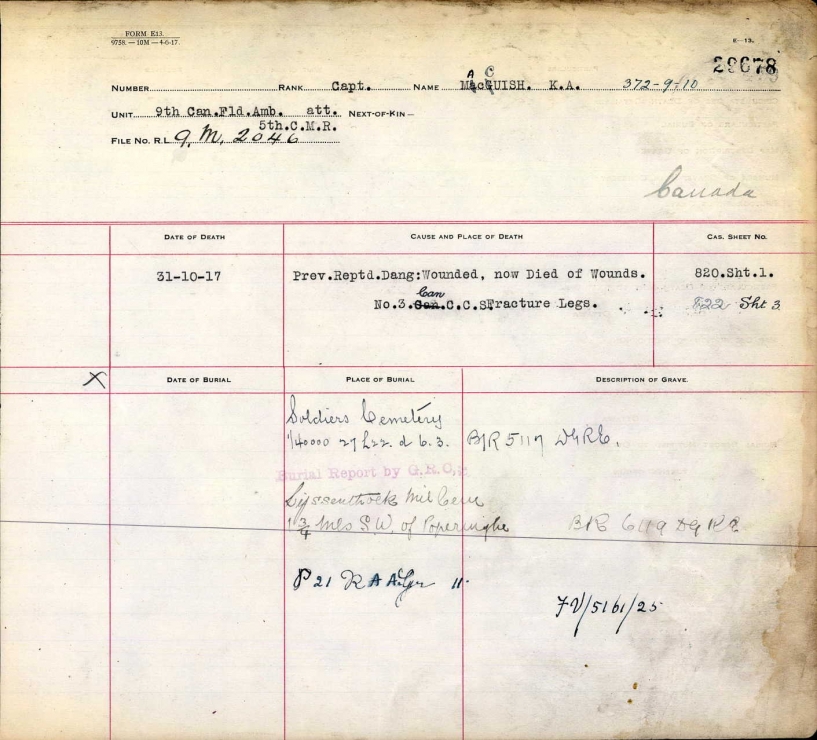 FORM E13.
9758.—10M—4-6-17.
E—13.
29678
NUMBER RANK Capt. NAME MacGUISH. K.A. 372-9-10
A C
UNIT 9th Can.Fld.Amb. att. NEXT-OF-KIN—
5th.C.M.R.
FILE NO. R.L. 9. M. 2046
Canada
DATE OF DEATH CAUSE AND PLACE OF DEATH CAS. SHEET NO.
31-10-17 Prev.Reptd.Dang:Wounded, now Died of Wounds. 820.Sht.1.
Can
No.3. C.C.S.Fracture Legs. 822 Sht 3
X DATE OF BURIAL PLACE OF BURIAL DESCRIPTION OF GRAVE.
Soldiers Cemetery
1/40000 27 L22. d 6.3. B/R 5117 DGRE.
Burial Report by G.R.C.
Lyssenthoek Mil Cem
1 3/4 Mls S.W. of Poperinghe B/R 6119 DGRE
P 21 R A A 11.
FV/5161/25